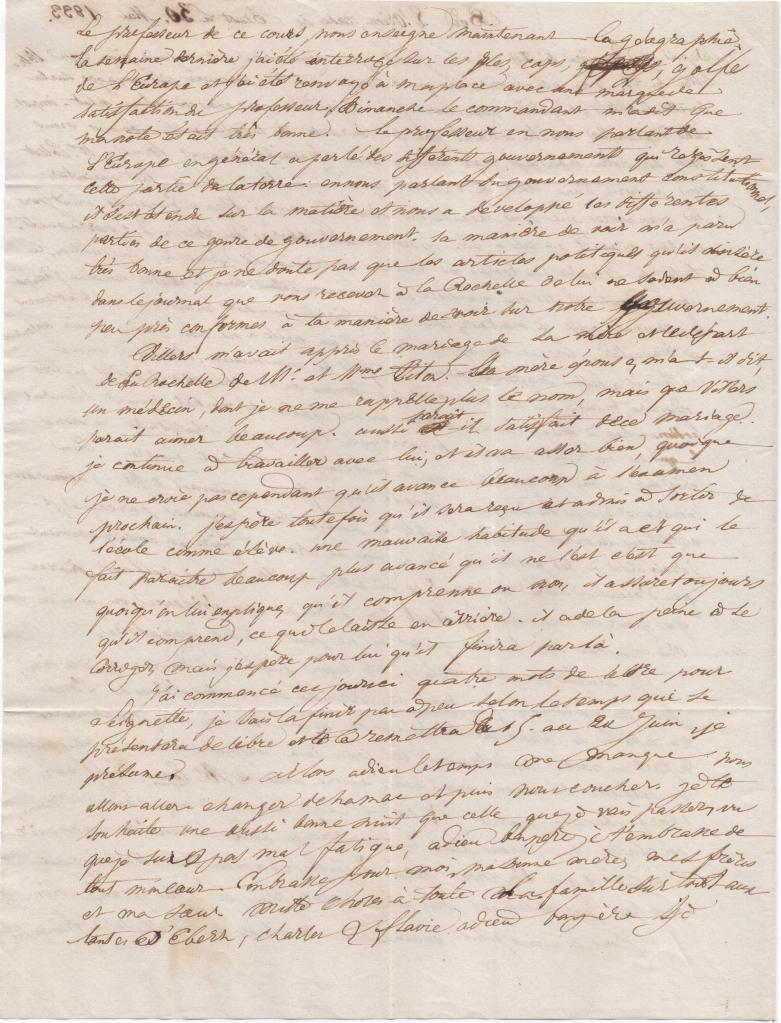 Le professeur de ce cours, nous enseigne maintenant la géographie
la semaine dernière j'ai été interrogé sur les îles, caps, golfes
de l'Europe et j'ai été renvoyé à ma place avec une marque de
satisfaction du professeur, Dimanche le commandant m'a dit que
ma note était très bonne. Le professeur en nous parlant de
l'Europe en général a parlé des différents gouvernements qui régissent
cette partie de la terre: en nous parlant du gouvernement constitutionnel,
il s'est étendu sur la matière et nous a développé les différentes
parties de ce genre de gouvernement. sa manière de voir m'a paru
très bonne et je ne doute pas que les articles politiques qu'il insère
dans le journal que vous recevez à la Rochelle de lui ne soient à bien
peu près conformes à ta manière de voir sur notre gouvernement.
Villers m'avait appris le mariage de sa mère et le départ
de La Rochelle de Mr. et Mme Titon. Sa mère épouse, m'a-t-il dit,
un médecin, dont je ne me rappelle plus le nom, mais que Villers
parait aimer beaucoup. aussi parait-il satisfait de ce mariage.
je continue à travailler avec lui, et il va assez bien, quoique
je ne croie pas cependant qu'il avance beaucoup à l'examen
prochain. j'espère toutefois qu'il sera reçu et admis à sortir de
l'école comme élève. une mauvaise habitude qu'il a et qui le
fait paraître beaucoup plus avancé qu'il ne l'est c'est que
quoiqu'on lui explique, qu'il comprenne ou non, il assure toujours
qu'il comprend, ce qui le laisse en arrière. il a de la peine à se
corriger, mais j'espère pour lui qu'il finira par là.
J'ai commencé ces jours ci quatre mots de lettre pour
Seignette, je vais la finir peu à peu selon le temps que se
présentera de libre et te la remettra le 15. au 20 Juin, je
présume. allons adieu le temps me manque nous
allons aller changer de hamac et puis nous coucher. je te
souhaite une aussi bonne nuit que celle que je vais passer, vu
que je suis pas mal fatigué, adieu bon père, je t'embrasse de
tout mon cœur. Embrasse pour moi, ma bonne mère, mes frères
et ma sœur. mille choses à toute la famille surtout aux
tantes d'Ebern, Charles & flavie adieu bon père